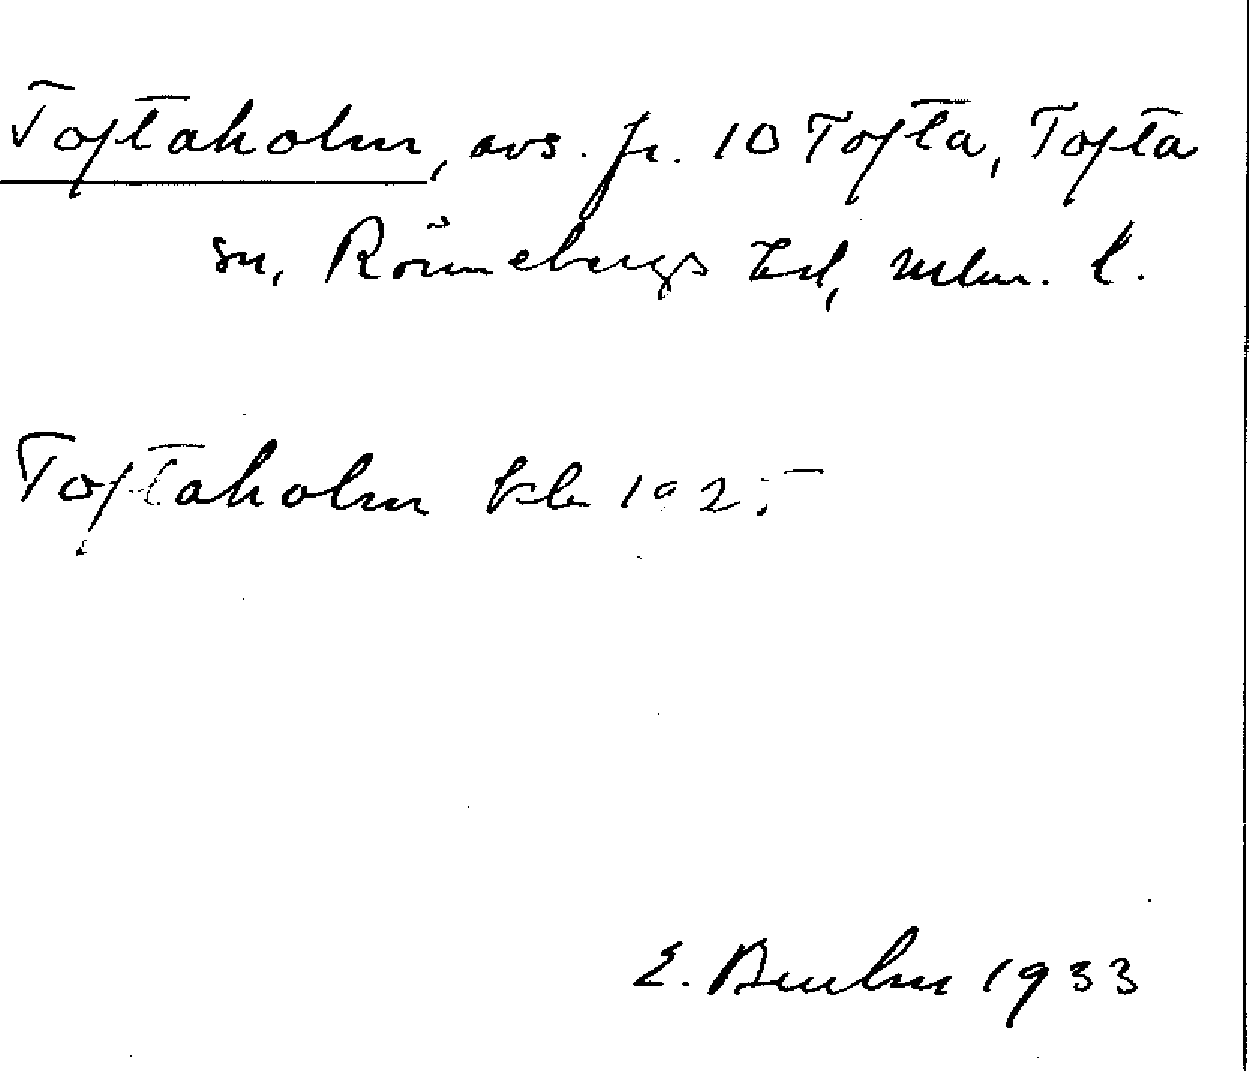 Toftaholm, avs. fr. 10 Tofta, Tofta
sn, Rönnebergs hd, Mlm. l.
Toftaholm kb 1925
E. 1933